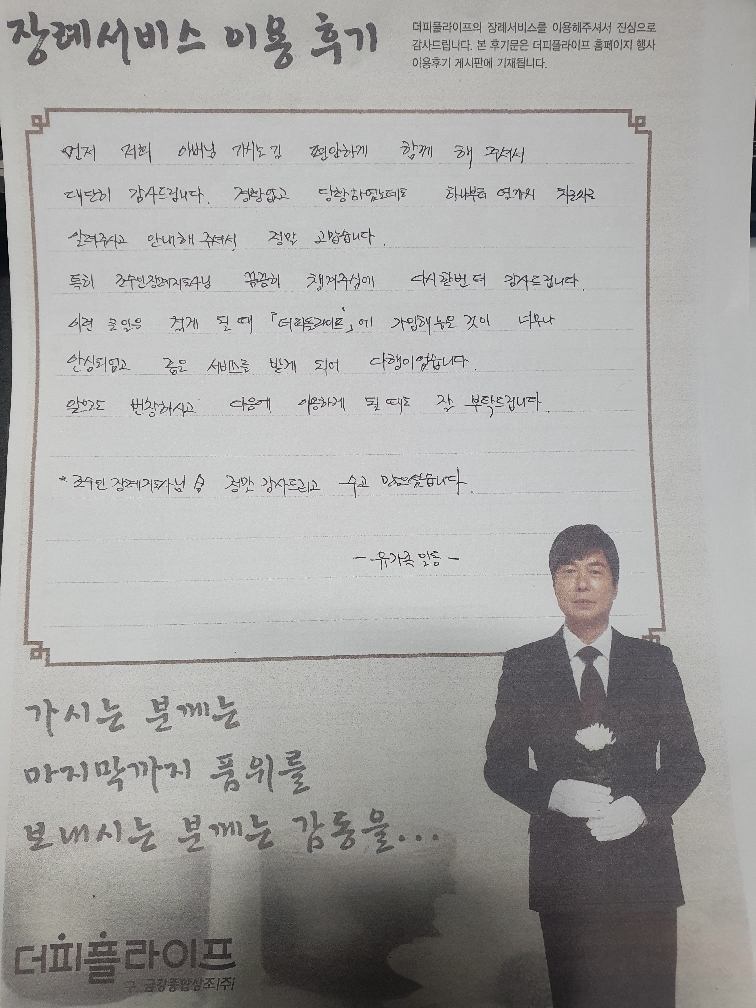 장례서비스 이용 후기
더피플라이프의 장례서비스를 이용해주셔서 진심으로
감사드립니다. 본 후기문은 더피플라이프 홈페이지 행사
이용후기 게시판에 기재됩니다.
먼저 저희 아버님 가시는길 편안하게 함께 해 주셔서
대단히 감사드립니다. 경황없고 당황하였는데도 하나부터 열까지 차근차근
알려주시고 안내해 주셔서 정말 고맙습니다.
특히 조수인장례지도사님 꼼꼼히 챙겨주심에 다시한번 더 감사드립니다.
이런 큰일을 겪게 될 때 「더피플라이프」에 가입해놓은 것이 너무나
안심되었고 좋은 서비스를 받게 되어 다행이었습니다.
앞으로도 번창하시고 다음에 이용하게 될 때도 잘 부탁드립니다.
* 조수인 장례지도사님 정말 감사드리고 수고 많으셨습니다.
- 유가족 일동 -
가시는 분께는
마지막까지 품위를
보내시는 분께는 감동을...
더피플라이프
구. 금강종합상조(주)